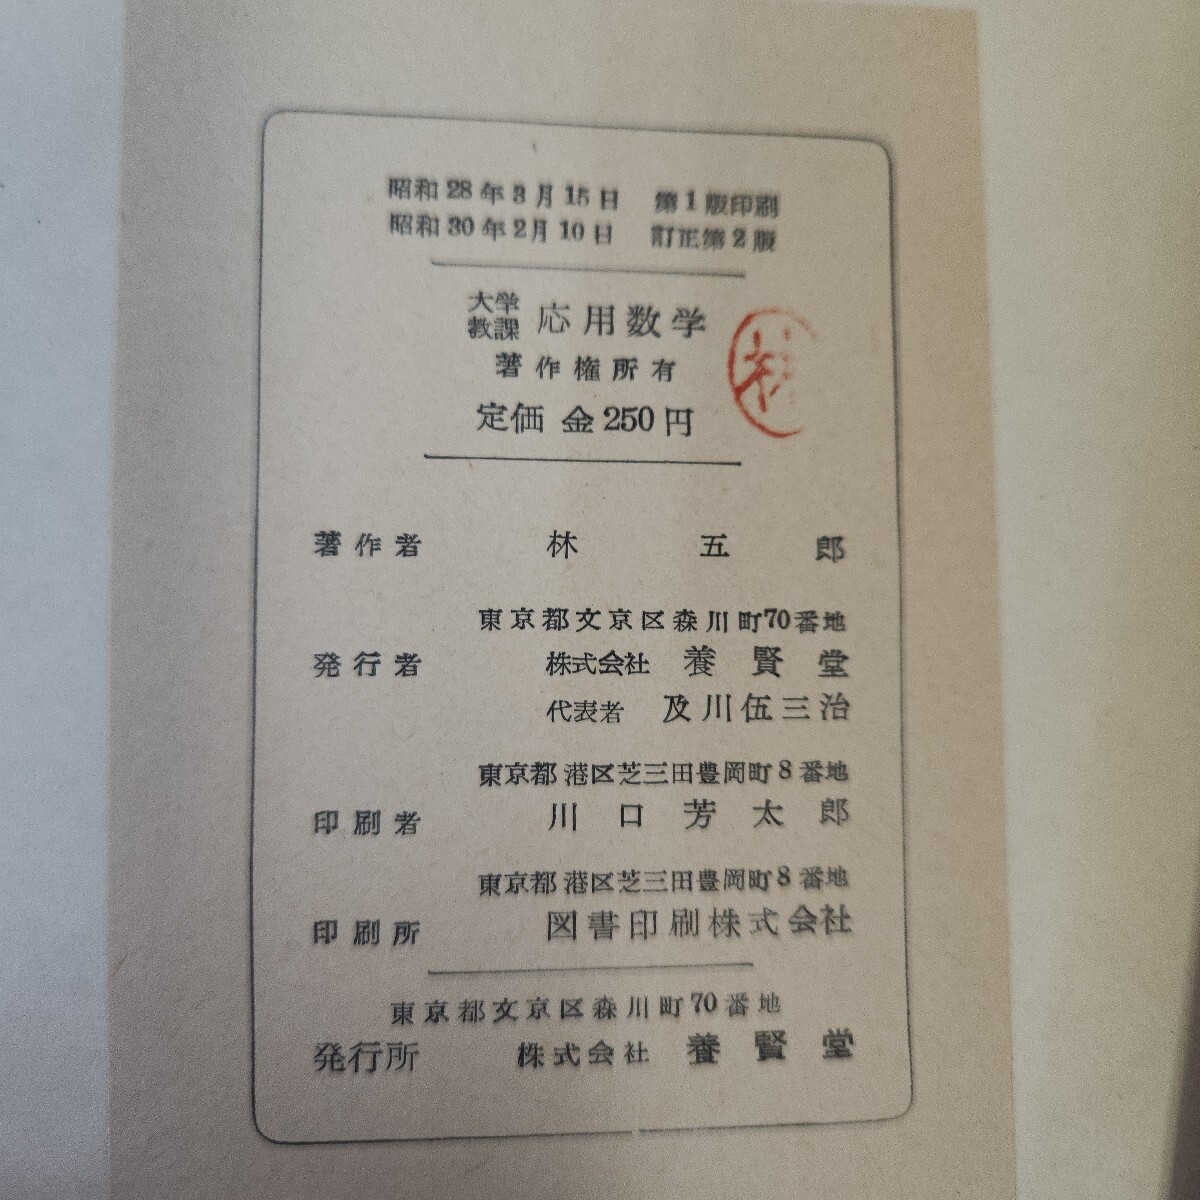 昭和28年3月15日 第1版印刷
昭和30年2月10日 訂正第2版
大学教課 応用数学
著作権所有
定価 金250円
著作者 林五郎
東京都文京区森川町70番地
発行者 株式会社 養賢堂
代表者 及川伍三治
東京都港区芝三田豊岡町8番地
印刷者 川口芳太郎
東京都港区芝三田豊岡町8番地
印刷所 図書印刷株式会社
東京都文京区森川町70番地
発行所 株式会社 養賢堂